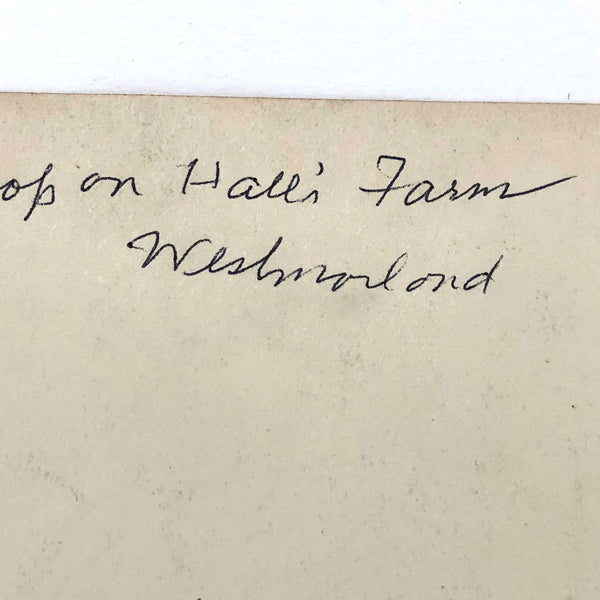 op on Hall's Farm
Westmorland